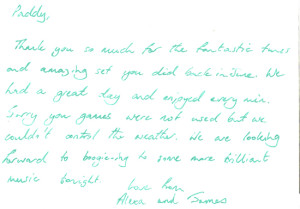 Paddy,
Thank you so much for the fantastic tunes
and amazing set you did back in June. We
had a great day and enjoyed every min.
Sorry you games were not used but we
couldn't control the weather. We are looking
forward to boogieing to some more brilliant
music tonight.
Love from
Alexa and James